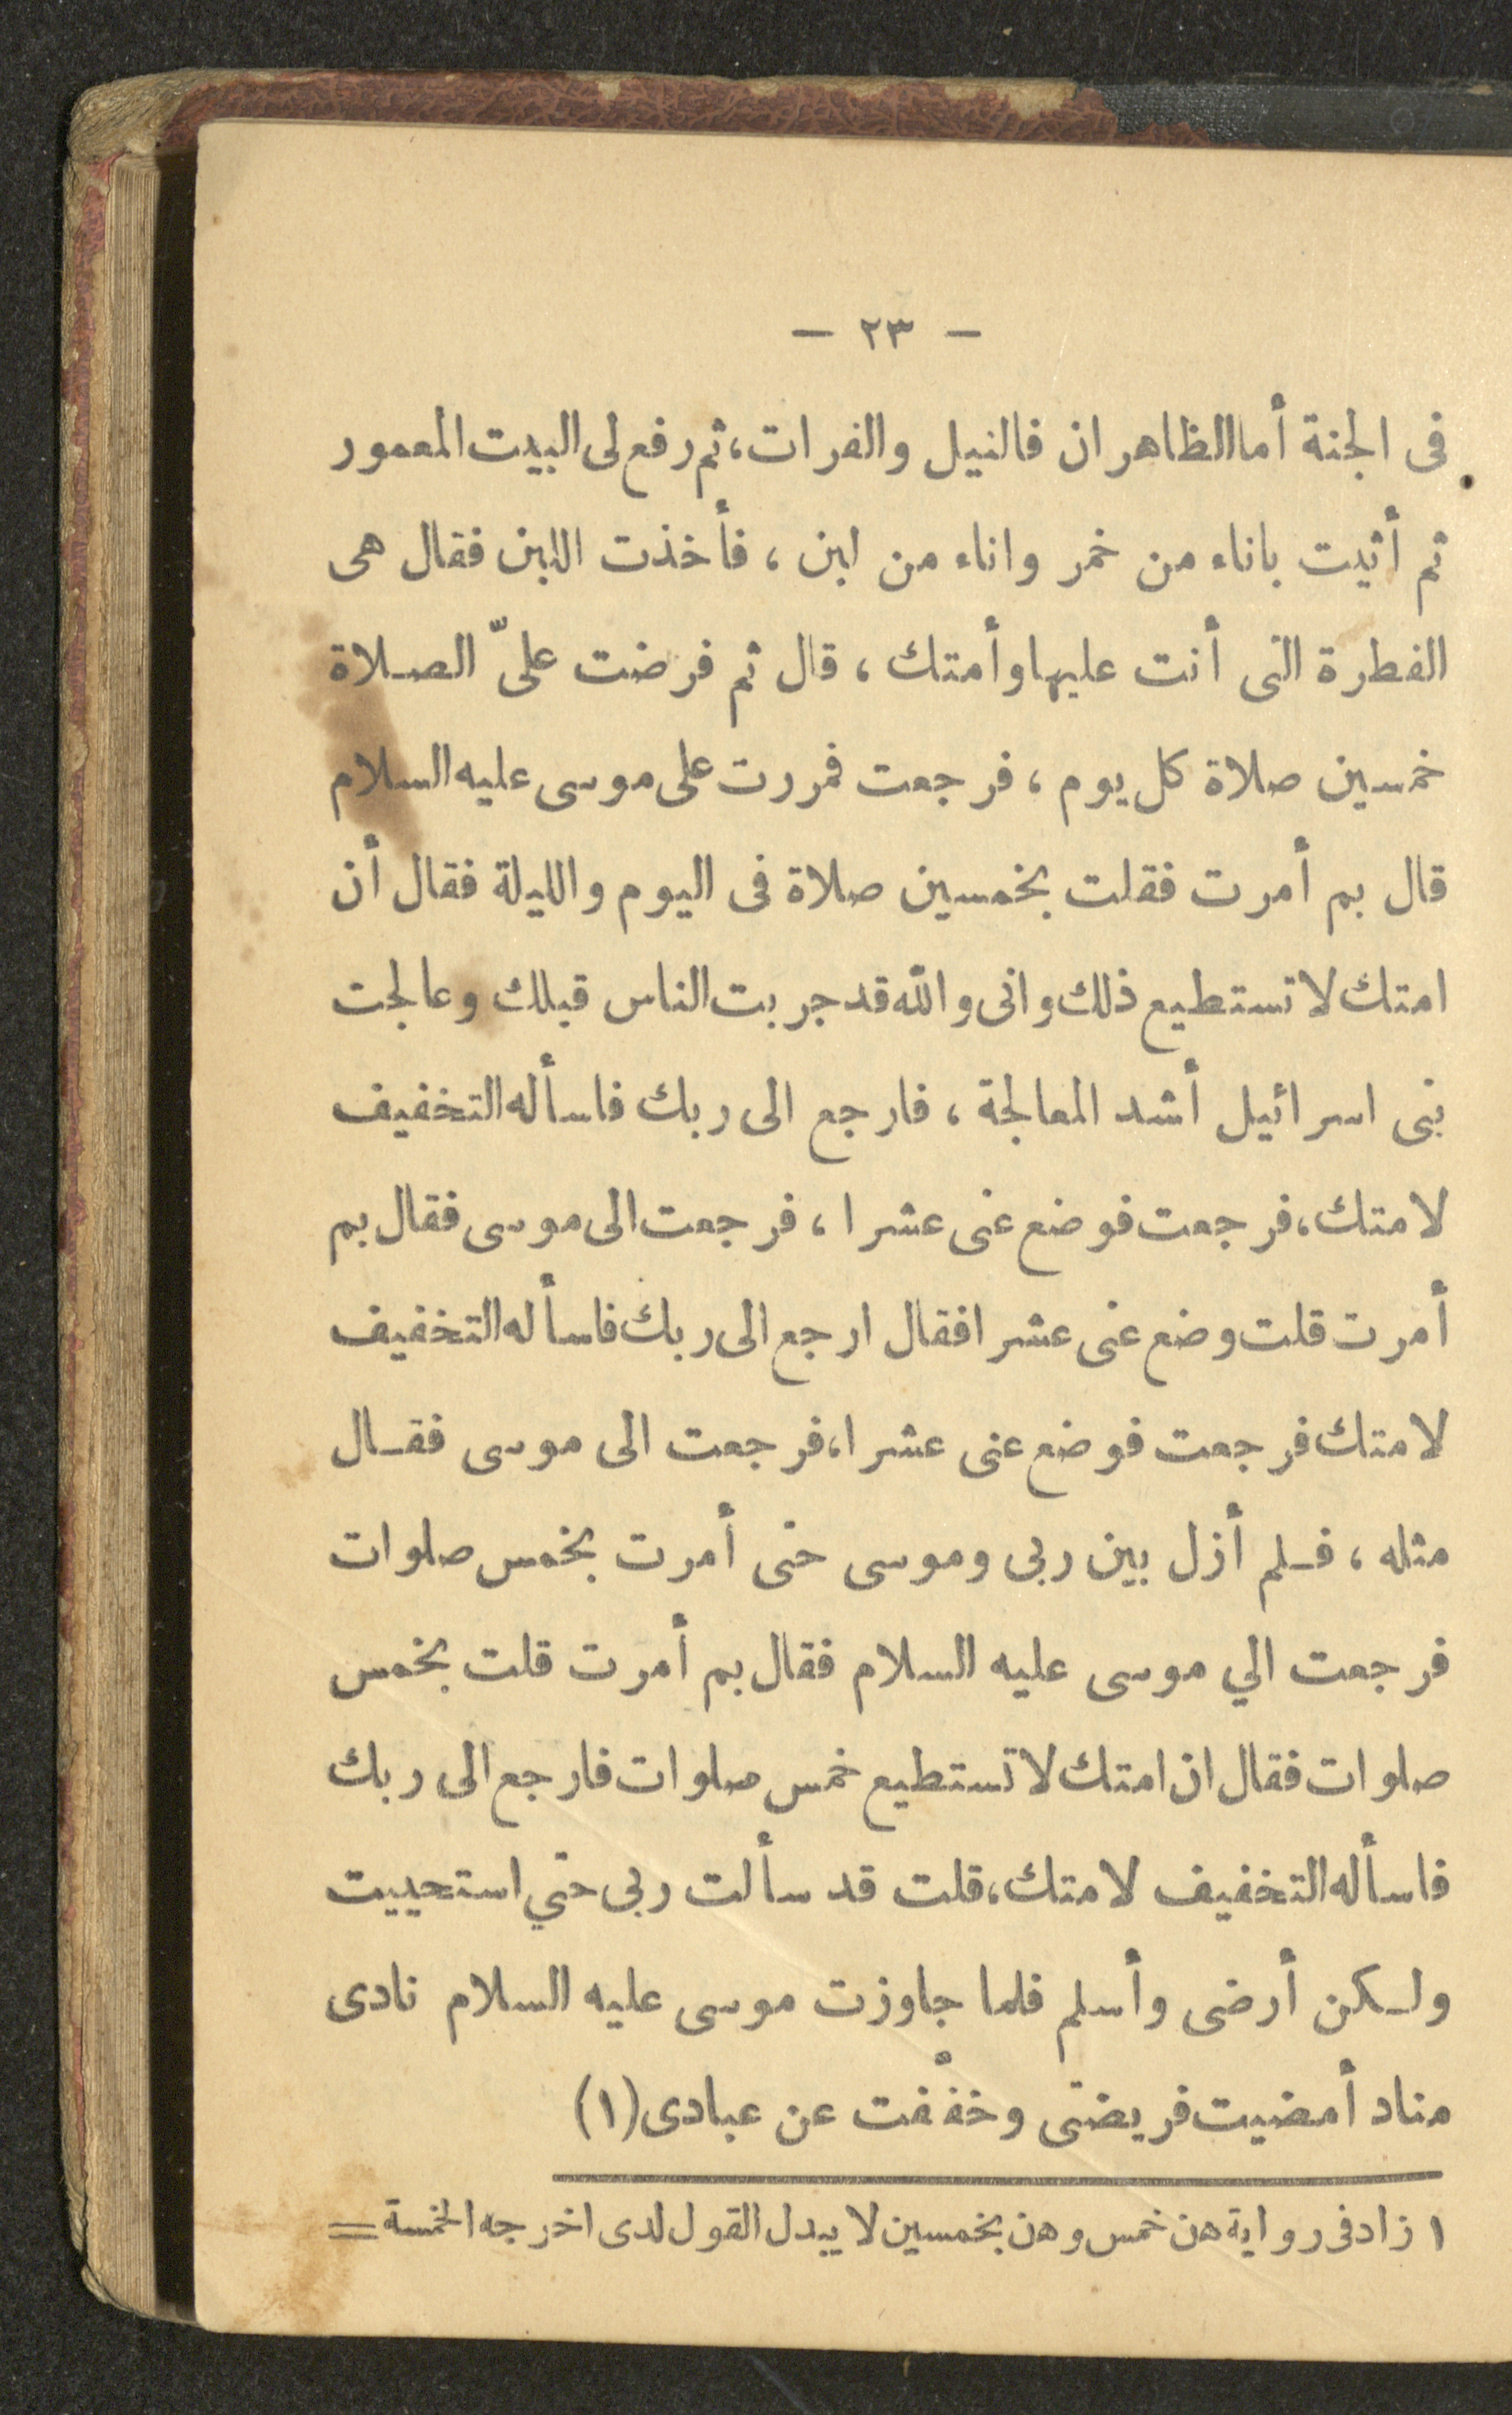 — ٢٣ —
فى الجنة أما الظاهران فالنيل والفرات، ثم رفع لى البيت المعمور
ثم أتيت باناء من خمر واناء من لبن ، فأخذت اللبن فقال هى
الفطرة التى أنت عليها وأمتك ، قال ثم فرضت علىّ الصلاة
خمسين صلاة كل يوم ، فرجعت فمررت على موسى عليه السلام
قال بم أمرت فقلت بخمسين صلاة فى اليوم والليلة فقال أن
امتك لا تستطيع ذلك وانى والله قد جربت الناس قبلك وعالجت
بنى اسرائيل أشد المعالجة ، فارجع الى ربك فاسأله التخفيف
لامتك، فرجعت فوضع عنى عشرا ، فرجعت الى موسى فقال بم
أمرت قلت وضع عنى عشرا فقال ارجع الى ربك فاسأله التخفيف
لامتك فرجعت فوضع عنى عشرا، فرجعت الى موسى فقال
مثله ، فلم أزل بين ربى وموسى حتى أمرت بخمس صلوات
فرجعت الي موسى عليه السلام فقال بم أمرت قلت بخمس
صلوات فقال ان امتك لا تستطيع خمس صلوات فارجع الى ربك
فاسأله التخفيف لامتك، قلت قد سألت ربى حتي استحييت
ولكن أرضى وأسلم فلما جاوزت موسى عليه السلام نادى
مناد أمضيت فريضتى وخفّفت عن عبادى (١)
١ زاد فى رواية هن خمس وهن بخمسين لا يبدل القول لدى اخرجه الخمسة =